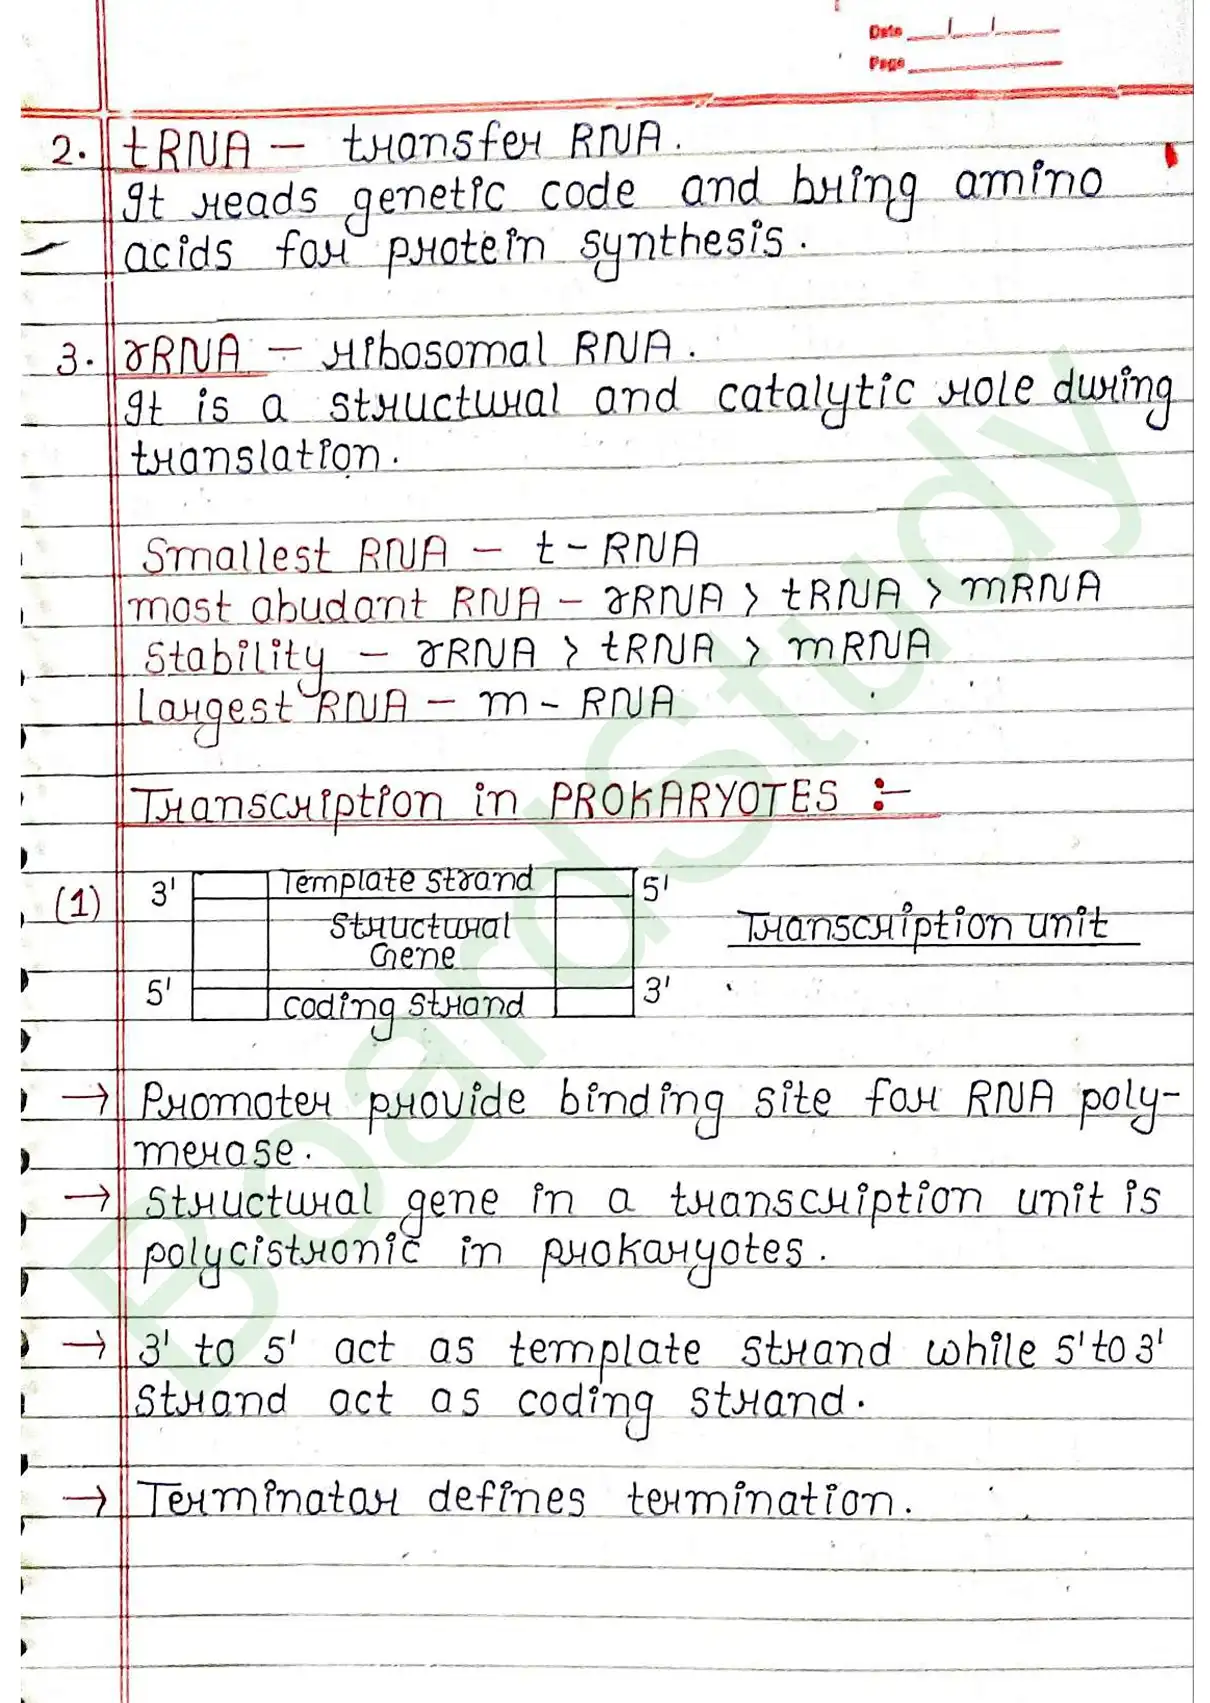 Date
Page
2. tRNA – transfer RNA.
It reads genetic code and bring amino
acids for protein synthesis.
3. rRNA – ribosomal RNA.
It is a structural and catalytic role during
translation.
Smallest RNA – t-RNA
most abudant RNA – rRNA > tRNA > mRNA
Stability – rRNA > tRNA > mRNA
Largest RNA – m-RNA
Transcription in PROKARYOTES :-
(1) 3' Template strand 5'
Structural Transcription unit
Gene
5' Coding strand 3'
→ Promoter provide binding site for RNA poly-
merase.
→ Structural gene in a transcription unit is
polycistronic in prokaryotes.
→ 3' to 5' act as template strand while 5' to 3'
strand act as coding strand.
→ Terminator defines termination.
BoardStudy